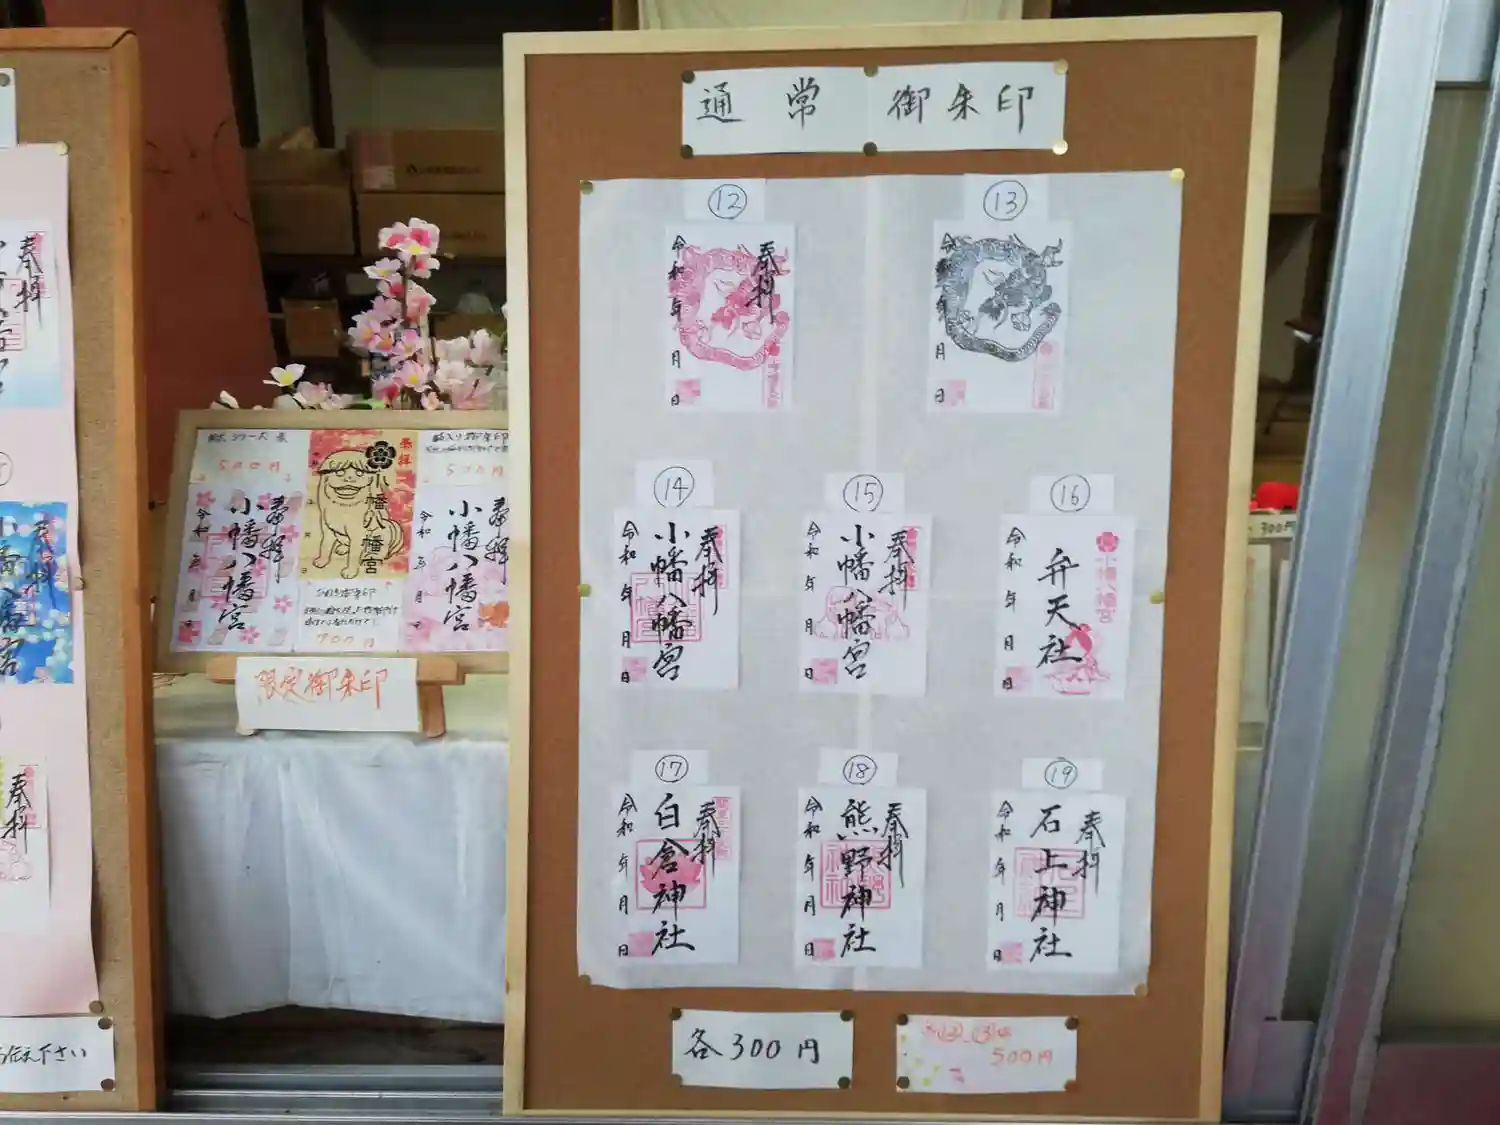 通常 御朱印
⑫
奉拝
令和 年 月 日
⑬
令和 年 月 日
⑭
奉拝
小幡八幡宮
令和 年 月 日
⑮
奉拝
小幡八幡宮
令和 年 月 日
⑯
小幡八幡宮
弁天社
令和 年 月 日
⑰
奉拝
白倉神社
令和 年 月 日
⑱
奉拝
熊野神社
令和 年 月 日
⑲
奉拝
石上神社
令和 年 月 日
各300円
500円
500円
奉拝
小幡八幡宮
令和 年 月
奉拝
小幡八幡宮
700円
500円
奉拝
小幡八幡宮
令和 年 月
限定御朱印
奉拝
奉拝
奉拝
お伝え下さい
300円